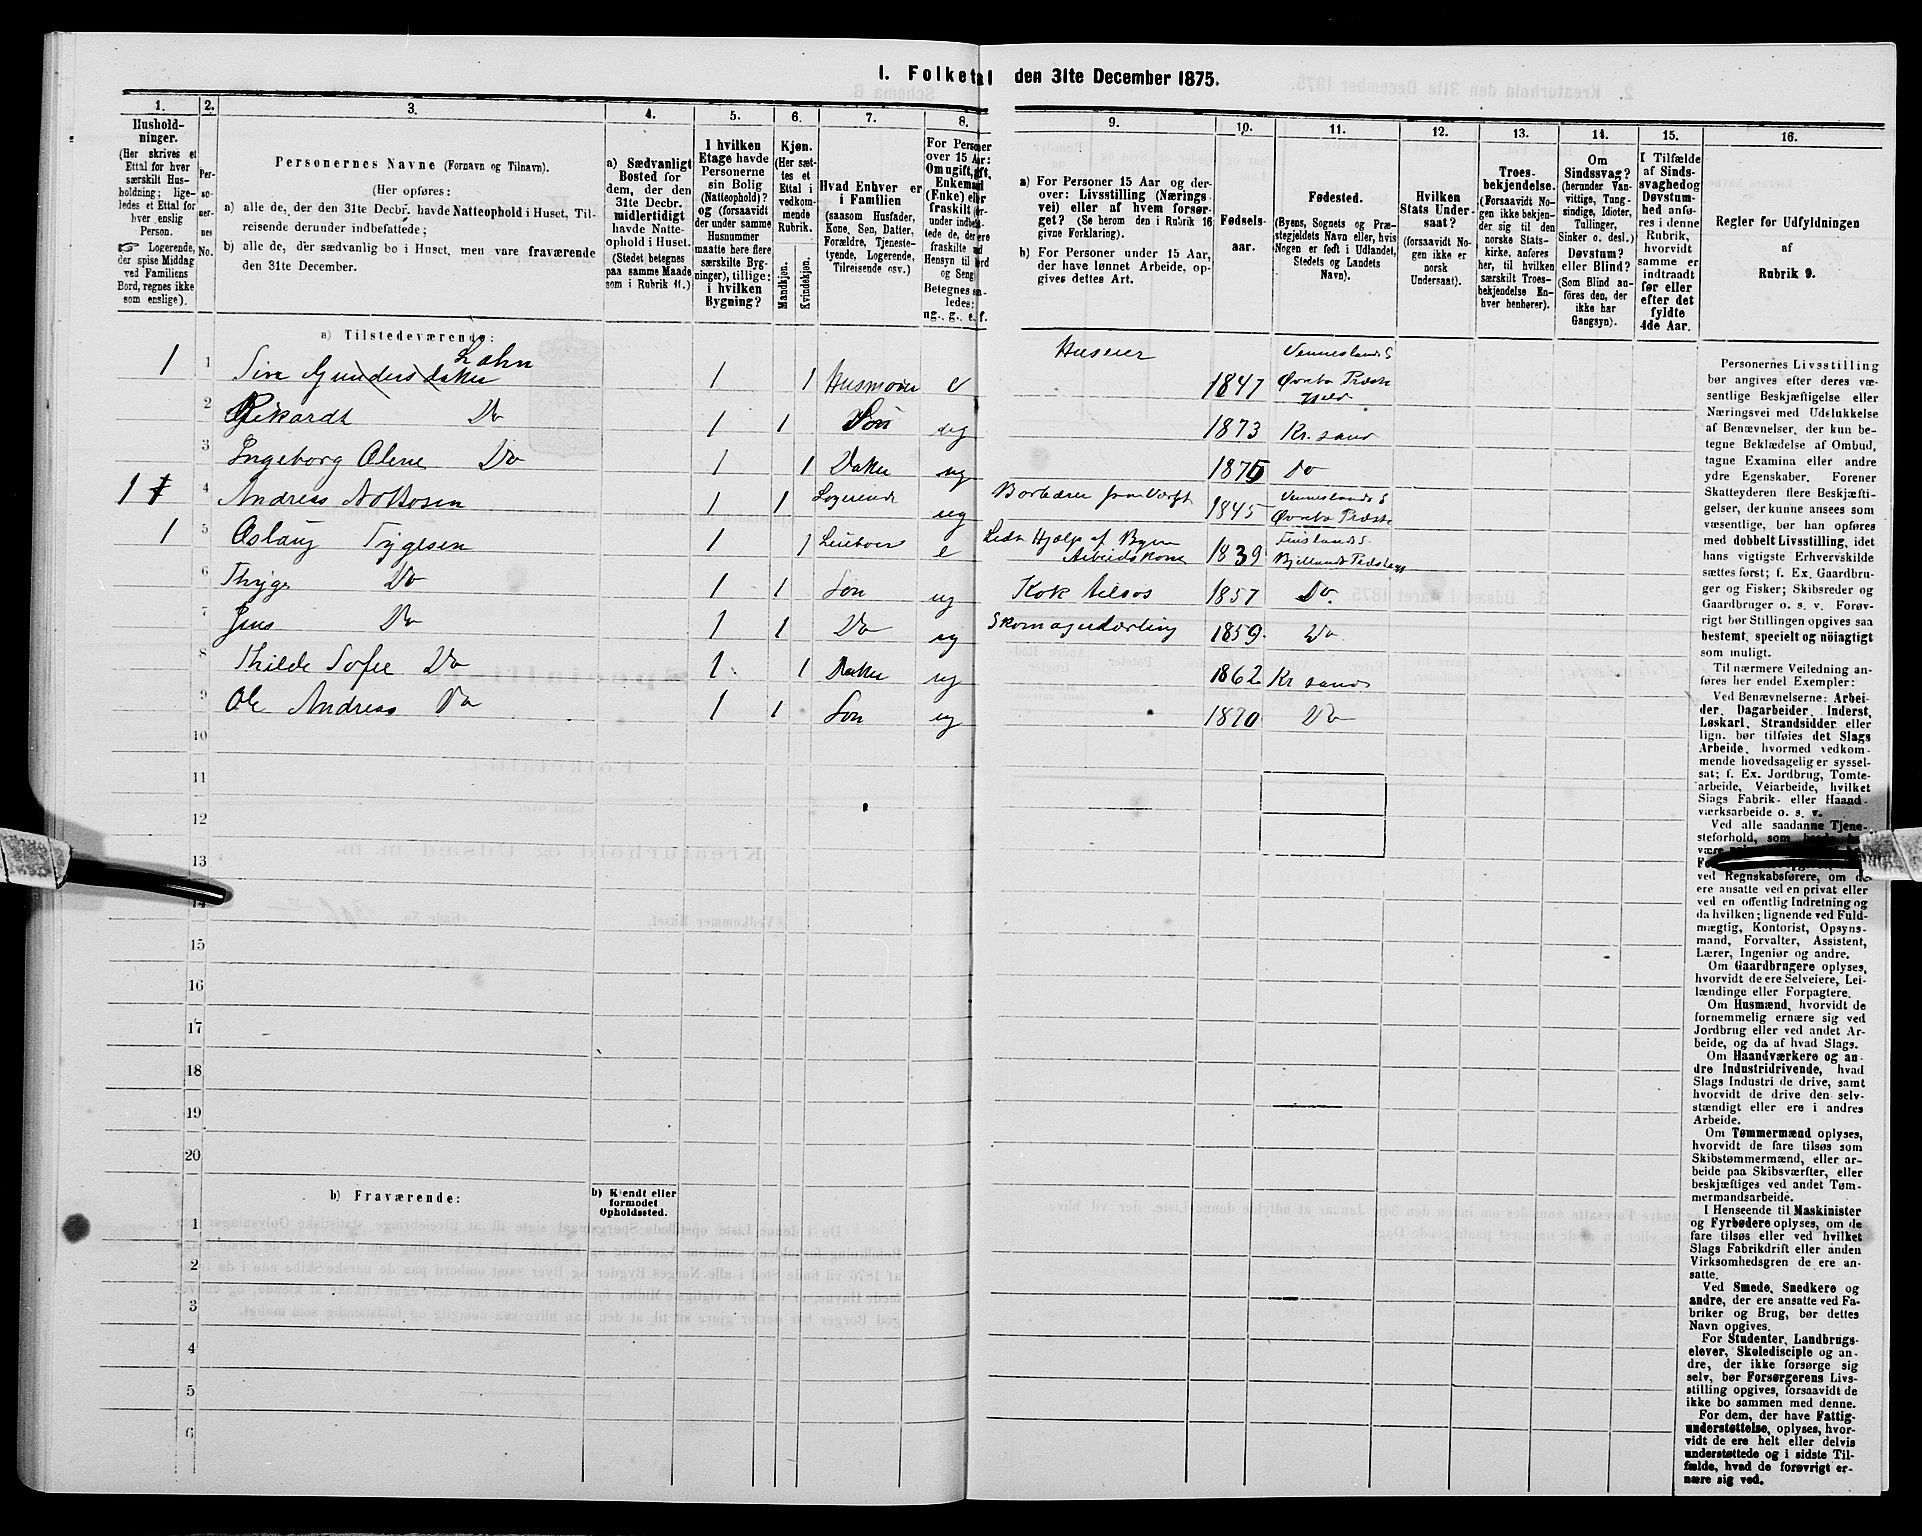 I. Folketal den 31te December 1875.
1. 2. 3. 4. 5. 6. 7. 8. 9. 10. 11. 12. 13. 14. 15. 16.
Hushold-
ninger.
(Her skrives et
Ettal for hver
særskilt Hus-
holdning; lige-
ledes et Ettal for
hver enslig
Person.
☞ Logerende,
der spise Middag
ved Familiens
Bord, regnes ikke
som enslige).
Per-
so-
ner-
nes
No.
Personernes Navne (Fornavn og Tilnavn).
(Her opføres:
a) alle de, der den 31te Decbr. havde Natteophold i Huset, Til-
reisende derunder indbefattede;
b) alle de, der sædvanlig bo i Huset, men vare fraværende
den 31te December.
a) Sædvanligt
Bosted for
dem, der den
31te Decbr.
midlertidigt
havde Natte-
ophold i Huset.
(Stedet betegnes
paa samme Maade
som i Rubrik 11.)
I hvilken
Etage havde
Personerne
sin Bolig
(Natteophold)?
og (forsaavidt
der under samme
Husnummer
maatte bære flere
særskilte Byg-
ninger), tillige:
i hvilken
Bygning?
Kjøn.
(Her sæt-
tes et
Ettal i
vedkom-
mende
Rubrik.
Mandkjøn.
Kvindekjøn.
Hvad Enhver er
i Familien
(saasom Husfader,
Kone, Søn, Datter,
Forældre, Tjeneste-
tyende, Logerende,
Tilreisende osv.)
For Personer
over 15 Aar:
Om ugift, gift,
Enkemand
(Enke) eller
fraskilt
Betegnes
ledes:
ug., g., e., f.
a) For Personer 15 Aar og der-
over: Livsstilling (Nærings-
vei) eller af hvem forsør-
get? (Se herom den i Rubrik 16
givne Forklaring).
b) For Personer under 15 Aar,
der have lønnet Arbeide, op-
gives dettes Art.
Fødsels-
aar.
Fødested.
(Byens, Sognets og Præ-
stegjeldets Navn eller, hvis
Nogen er født i Udlandet,
Stedets og Landets
Navn).
Hvilken
Stats Under-
saat?
(forsaavidt No-
gen ikke er
norsk
Undersaat).
Troes-
bekjendelse.
(Forsaavidt No-
gen ikke bekjen-
der sig til den
norske Stats-
kirke, anføres
her, til hvilken
særskilt Troes-
bekjendelse En-
hver henhører).
Om
Sindssvag?
(herunder Van-
vittige, Tung-
sindige, Idioter,
Tullinger,
Sinker o. desl.)
Døvstum?
eller Blind?
(Som Blind an-
føres den, der
ikke har
Gangsyn).
I Tilfælde
af Sinds-
svaghed og
Døvstum-
hed anfø-
res i denne
Rubrik,
hvorvidt
samme er
indtraadt
før eller
efter det
fyldte
4de Aar.
Regler for Udfyldningen
af
Rubrik 9.
a) Tilstedeværende:
1 1 Sire Gundersdatter Lohn 1 1 Husmoder e Huseier 1847 Venneslands S Øvrebo Præste gjeld
2 Rikardt Do 1 1 Søn ug 1873 Kr. sand
3 Ingeborg Olene Do 1 1 Datter ug 1875 Do
1 4 Andreas Aottosen 1 1 Logerende ug 1845 Venneslands S Øvrebo Præste
1 5 Oslaug Tygesen 1 1 e Hjælp af Byen Arbeidskone 1839 Bjellands
6 Thyge Do 1 1 Søn ug Kok tilsøs 1857 Do.
7 Jens Do 1 1 Do ug Skomagerlærling 1859. Do
8 Thilde Sofie Do 1 1 Datter ug 1862 Kr sand
9 Ole Andreas Do 1 1 Søn ug 1870 Do
10
11
12
13
14
15
16
17
18
19
20
b) Fraværende:
b) Kjendt eller
formodet
Opholdssted.
1
2
3
4
5
6
Personernes Livsstilling
bør angives efter deres væ-
sentlige Beskjæftigelse eller
Næringsvei med Udelukkelse
af Benævnelser, der kun be-
tegne Beklædelse af Ombud,
tagne Examina eller andre
ydre Egenskaber. Forener
Skatteyderen flere Beskjæfti-
gelser, der kunne ansees som
væsentlige, bør han opføres
med dobbelt Livsstilling, idet
hans vigtigste Erhvervskilde
sættes først; f. Ex. Gaardbru-
ger og Fisker; Skibsreder og
Gaardbruger o. s. v. Forøv-
rigt bør Stillingen opgives saa
bestemt, specielt og nøiagtigt
som muligt.
Til nærmere Veiledning an-
føres her endel Exempler:
Ved Benævnelserne: Arbei-
der, Dagarbeider, Inderst,
Løskarl, Strandsidder eller
lign. bør tilføies det Slags
Arbeide, hvormed vedkom-
mende hovedsagelig er syssel-
sat; f. Ex. Jordbrug, Tomte-
arbeide, Veiarbeide, hvilket
Slags Fabrik- eller Haand-
værksarbeide o. s. v.
Ved alle saadanne Tjene-
steforhold, som
ved Regnskabsførere, om de
ere ansatte ved en privat eller
ved en offentlig Indretning og
da hvilken; lignende ved Fuld-
mægtig, Kontorist, Opsyns-
mand, Forvalter, Assistent,
Lærer, Ingeniør og andre.
Om Gaardbrugere oplyses,
hvorvidt de ere Selveiere, Lei-
lændinge eller Forpagtere.
Om Husmænd, hvorvidt de
fornemmelig ernære sig ved
Jordbrug eller ved andet Ar-
beide, og da af hvad Slags.
Om Haandværkere og an-
dre Industridrivende, hvad
Slags Industri de drive, samt
hvorvidt de drive den selv-
stændigt eller ere i andres
Arbeide.
Om Tømmermænd oplyses,
hvorvidt de fare tilsøs som
Skibstømmermænd, eller ar-
beide paa Skibsværfter, eller
beskjæftiges ved andet Tøm-
mermandsarbeide.
I Henseende til Maskinister
og Fyrbødere oplyses, om de
fare tilsøs eller ved hvilket
Slags Fabrikdrift eller anden
Virksomhedsgren de ere an-
satte.
Ved Smede, Snedkere og
andre, der ere ansatte ved Fa-
briker og Brug, bør dettes
Navn opgives.
For Studenter, Landbrugs-
elever, Skoledisciple og an-
dre, der ikke forsørge sig
selv, bør Forsørgerens Livs-
stilling opgives, forsaavidt de
ikke bo sammen med denne.
For dem, der have Fattig-
understøttelse, oplyses, hvor-
vidt de ere helt eller delvis
understøttede og i sidste Til-
fælde, hvad de forøvrigt er-
nære sig ved.